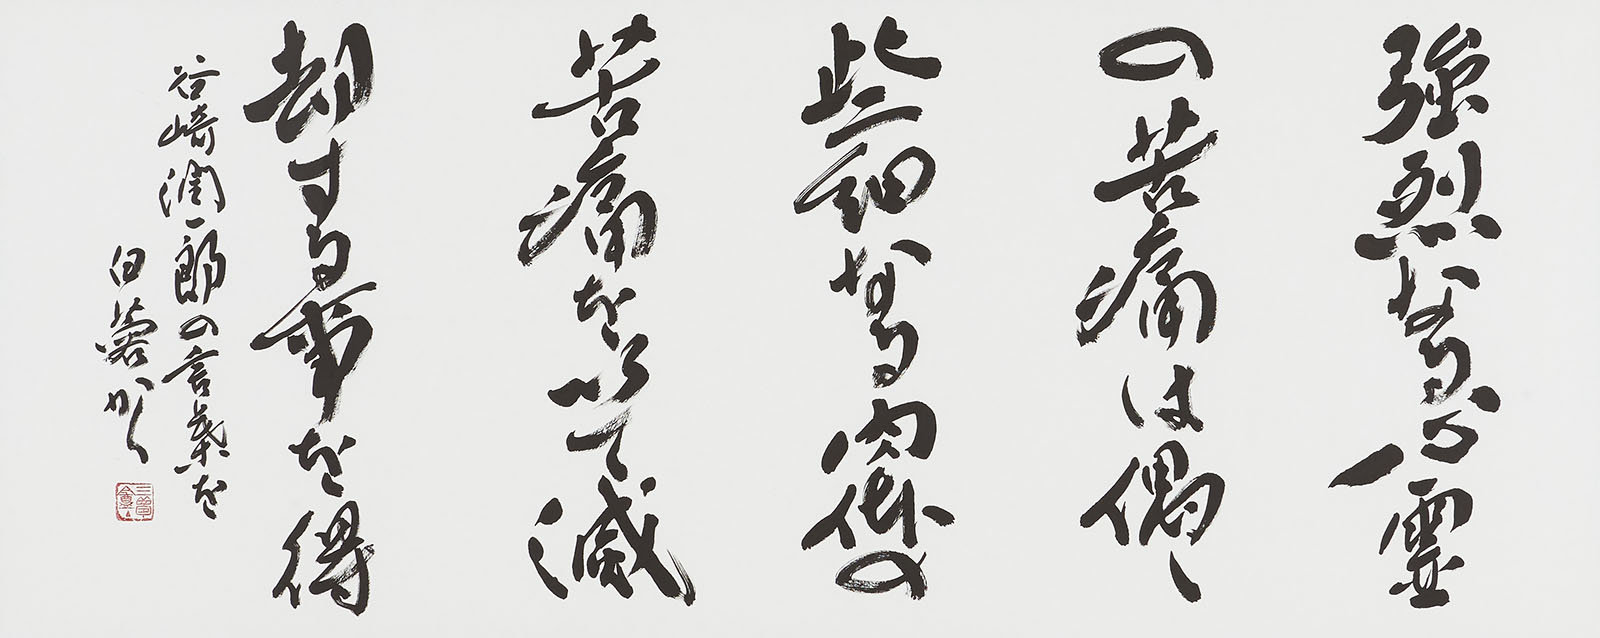 強烈なる心霊
の苦痛は偶〻
些細なる肉体の
苦痛を以て減
却する事を得
谷崎潤一郎の言葉を
白蓉かく